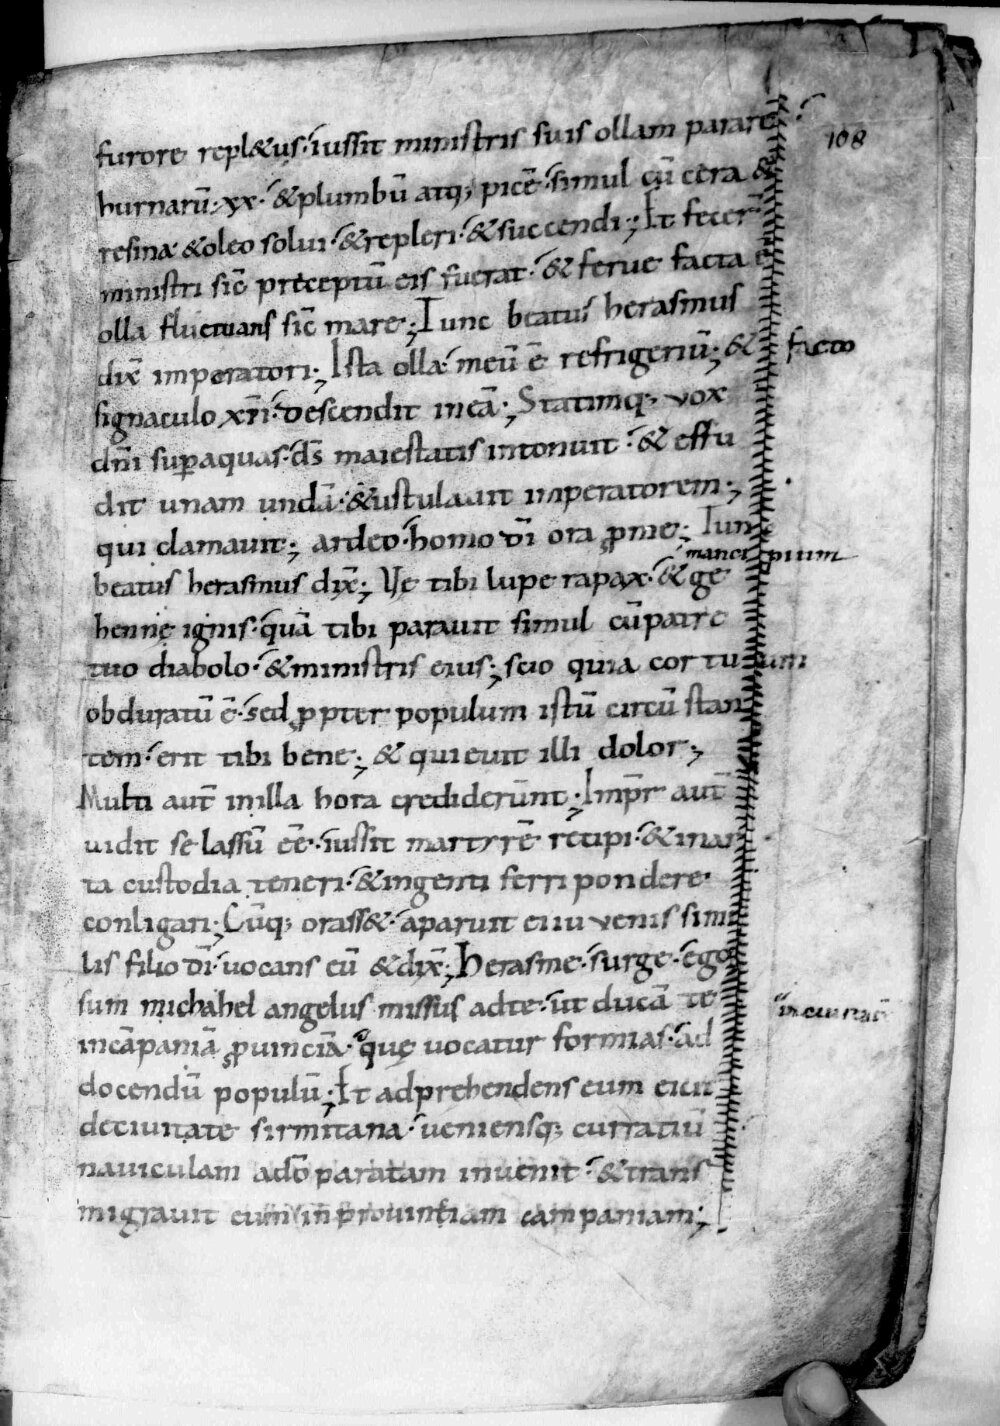 furore repl&us· iussit ministris suis ollam parare
108
hurnarū· xx· & plumbū atq; picē· simul cū cera &
resina· & oleo solui· & repleri· & succendi; Et fecer̄
ministri sic̄ preceptū eis fuerat· & ferue facta ē
olla fluctuans sic̄ mare; Tunc beatus herasmus
dix̄ imperatori; Ista olla· meū ē refrigeriū; & facto
signaculo xr̄i· descendit incā; Statimq; vox
dn̄i sup aquas· ds̄ maiestatis intonuit· & effu
dit unam undā· & ustulauit imperatorem;
qui clamauit; ardeo· homo dī ora pme; Tunc
beatus herasmus dix̄; Vę tibi lupe rapax· & ge
mancipium
hennę ignis· quā tibi parauit simul cūpatre
tuo diabolo· & ministris eius; scio quia cor tuum
obduratū ē· sed ppter populum istū circū stan
tem· erit tibi bene; & quieuit illi dolor;
Multi aut̄ inilla hora crediderūnt; Imp̄r aut̄
uidit se lassū eē· iussit martyrē recipi· & inar
ta custodia teneri· & ingenti ferri pondere·
conligari; Cūq; orass&· aparuit ei iuvenis simi
lis filio dī· uocans eū & dix̄; Herasme· surge· ego
sum michahel angelus missus adte· ut ducā te
incāpaniā puinciā· quę uocatur formias· ad
docendū populū; Et adprehendens eum eicit
deciuitate sirmitana· ueniensq; curratiū
nauiculam adō paratam inuenit· & trans
migrauit eum in prouintiam campaniam;